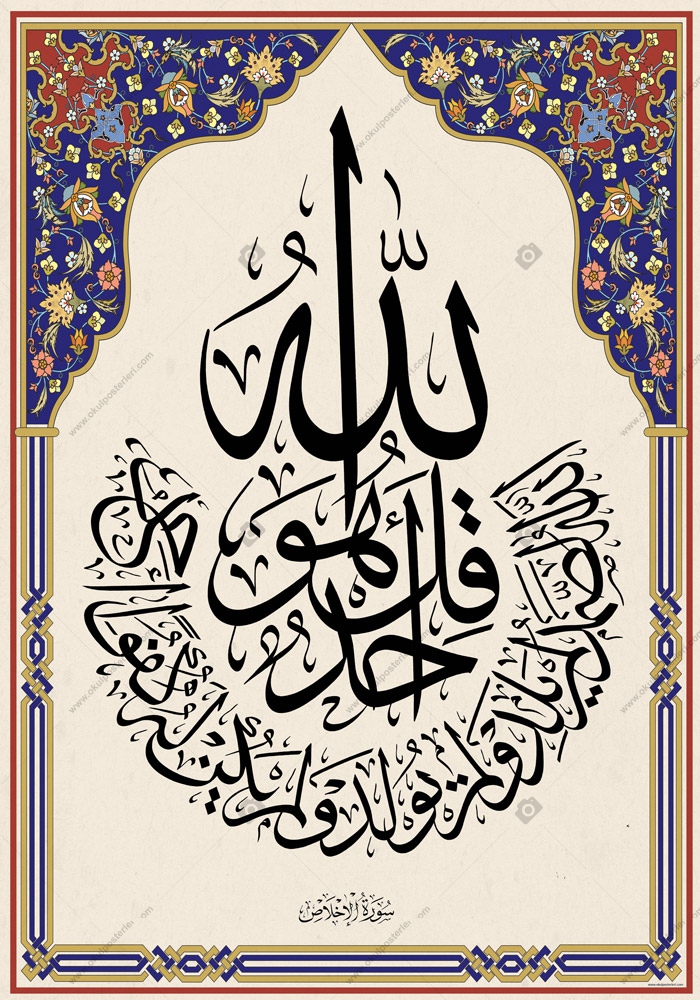 قل هو الله أحد
الله الصمد لم يلد ولم يولد ولم يكن له كفوا أحد
سورة الإخلاص
www.okulposterleri.com